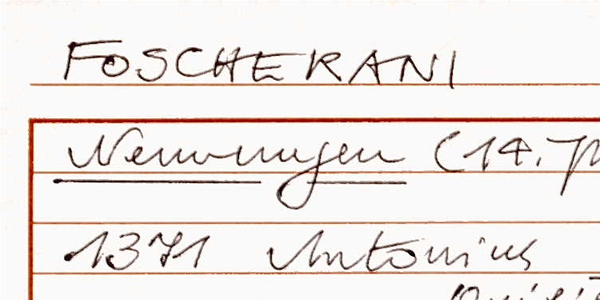 FOSCHERANI
Nennungen (14.
1371 Antonius